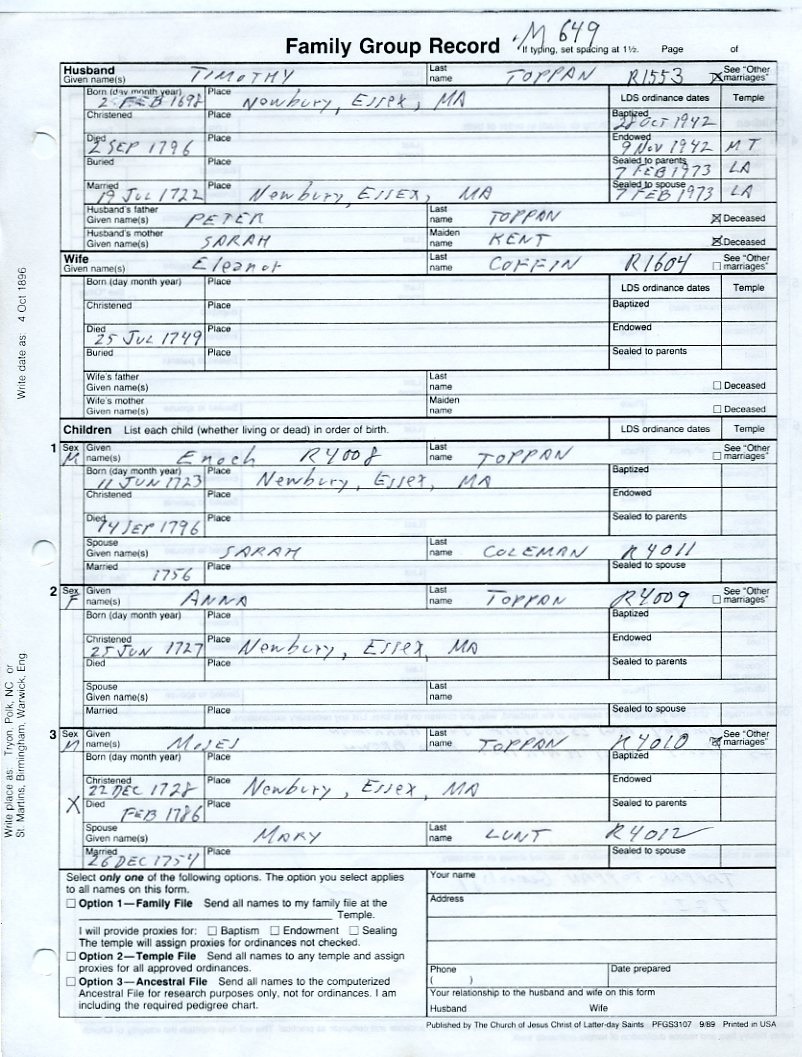 M 649
Family Group Record If typing, set spacing at 1½. Page of
Husband Given name(s) TIMOTHY Last name TOPPAN R1553 ☒ See "Other marriages"
Born (day month year) 2 FEB 1698 Place Newbury, Essex, MA LDS ordinance dates Temple
Christened Place Baptized 28 OCT 1942
Died 2 SEP 1796 Place Endowed 9 NOV 1942 MT
Buried Place Sealed to parents 7 FEB 1973 LA
Married 19 JUL 1722 Place Newbury, ESSEX, MA Sealed to spouse 7 FEB 1973 LA
Husband's father Given name(s) PETER Last name TOPPAN ☒ Deceased
Husband's mother Given name(s) SARAH Maiden name KENT ☒ Deceased
Wife Given name(s) Eleanor Last name COFFIN R1604 ☐ See "Other marriages"
Born (day month year) Place LDS ordinance dates Temple
Christened Place Baptized
Died 25 JUL 1749 Place Endowed
Buried Place Sealed to parents
Wife's father Given name(s) Last name ☐ Deceased
Wife's mother Given name(s) Maiden name ☐ Deceased
Children List each child (whether living or dead) in order of birth. LDS ordinance dates Temple
1 Sex M Given name(s) Enoch R4008 Last name TOPPAN ☐ See "Other marriages"
Born (day month year) 11 JUN 1723 Place Newbury, Essex, MA Baptized
Christened Place Endowed
Died 14 SEP 1796 Place Sealed to parents
Spouse Given name(s) SARAH Last name COLEMAN R4011
Married 1756 Place Sealed to spouse
2 Sex F Given name(s) ANNA Last name TOPPAN R4009 ☐ See "Other marriages"
Born (day month year) Place Baptized
Christened 25 JUN 1727 Place Newbury, Essex, MA Endowed
Died Place Sealed to parents
Spouse Given name(s) Last name
Married Place Sealed to spouse
3 Sex M Given name(s) MOSES Last name TOPPAN R4010 ☒ See "Other marriages"
Born (day month year) Place Baptized
Christened 22 DEC 1728 Place Newbury, Essex, MA Endowed
X Died FEB 1786 Place Sealed to parents
Spouse Given name(s) MARY Last name LUNT R4012
Married 26 DEC 1754 Place Sealed to spouse
Select only one of the following options. The option you select applies
to all names on this form.
☐ Option 1—Family File Send all names to my family file at the
Temple.
I will provide proxies for: ☐ Baptism ☐ Endowment ☐ Sealing
The temple will assign proxies for ordinances not checked.
☐ Option 2—Temple File Send all names to any temple and assign
proxies for all approved ordinances.
☐ Option 3—Ancestral File Send all names to the computerized
Ancestral File for research purposes only, not for ordinances. I am
including the required pedigree chart.
Your name
Address
Phone ( ) Date prepared
Your relationship to the husband and wife on this form
Husband Wife
Published by The Church of Jesus Christ of Latter-day Saints PFGS3107 9/89 Printed in USA
Write date as: 4 Oct 1896
Write place as: Tryon, Polk, NC or
St. Martins, Birmingham, Warwick, Eng